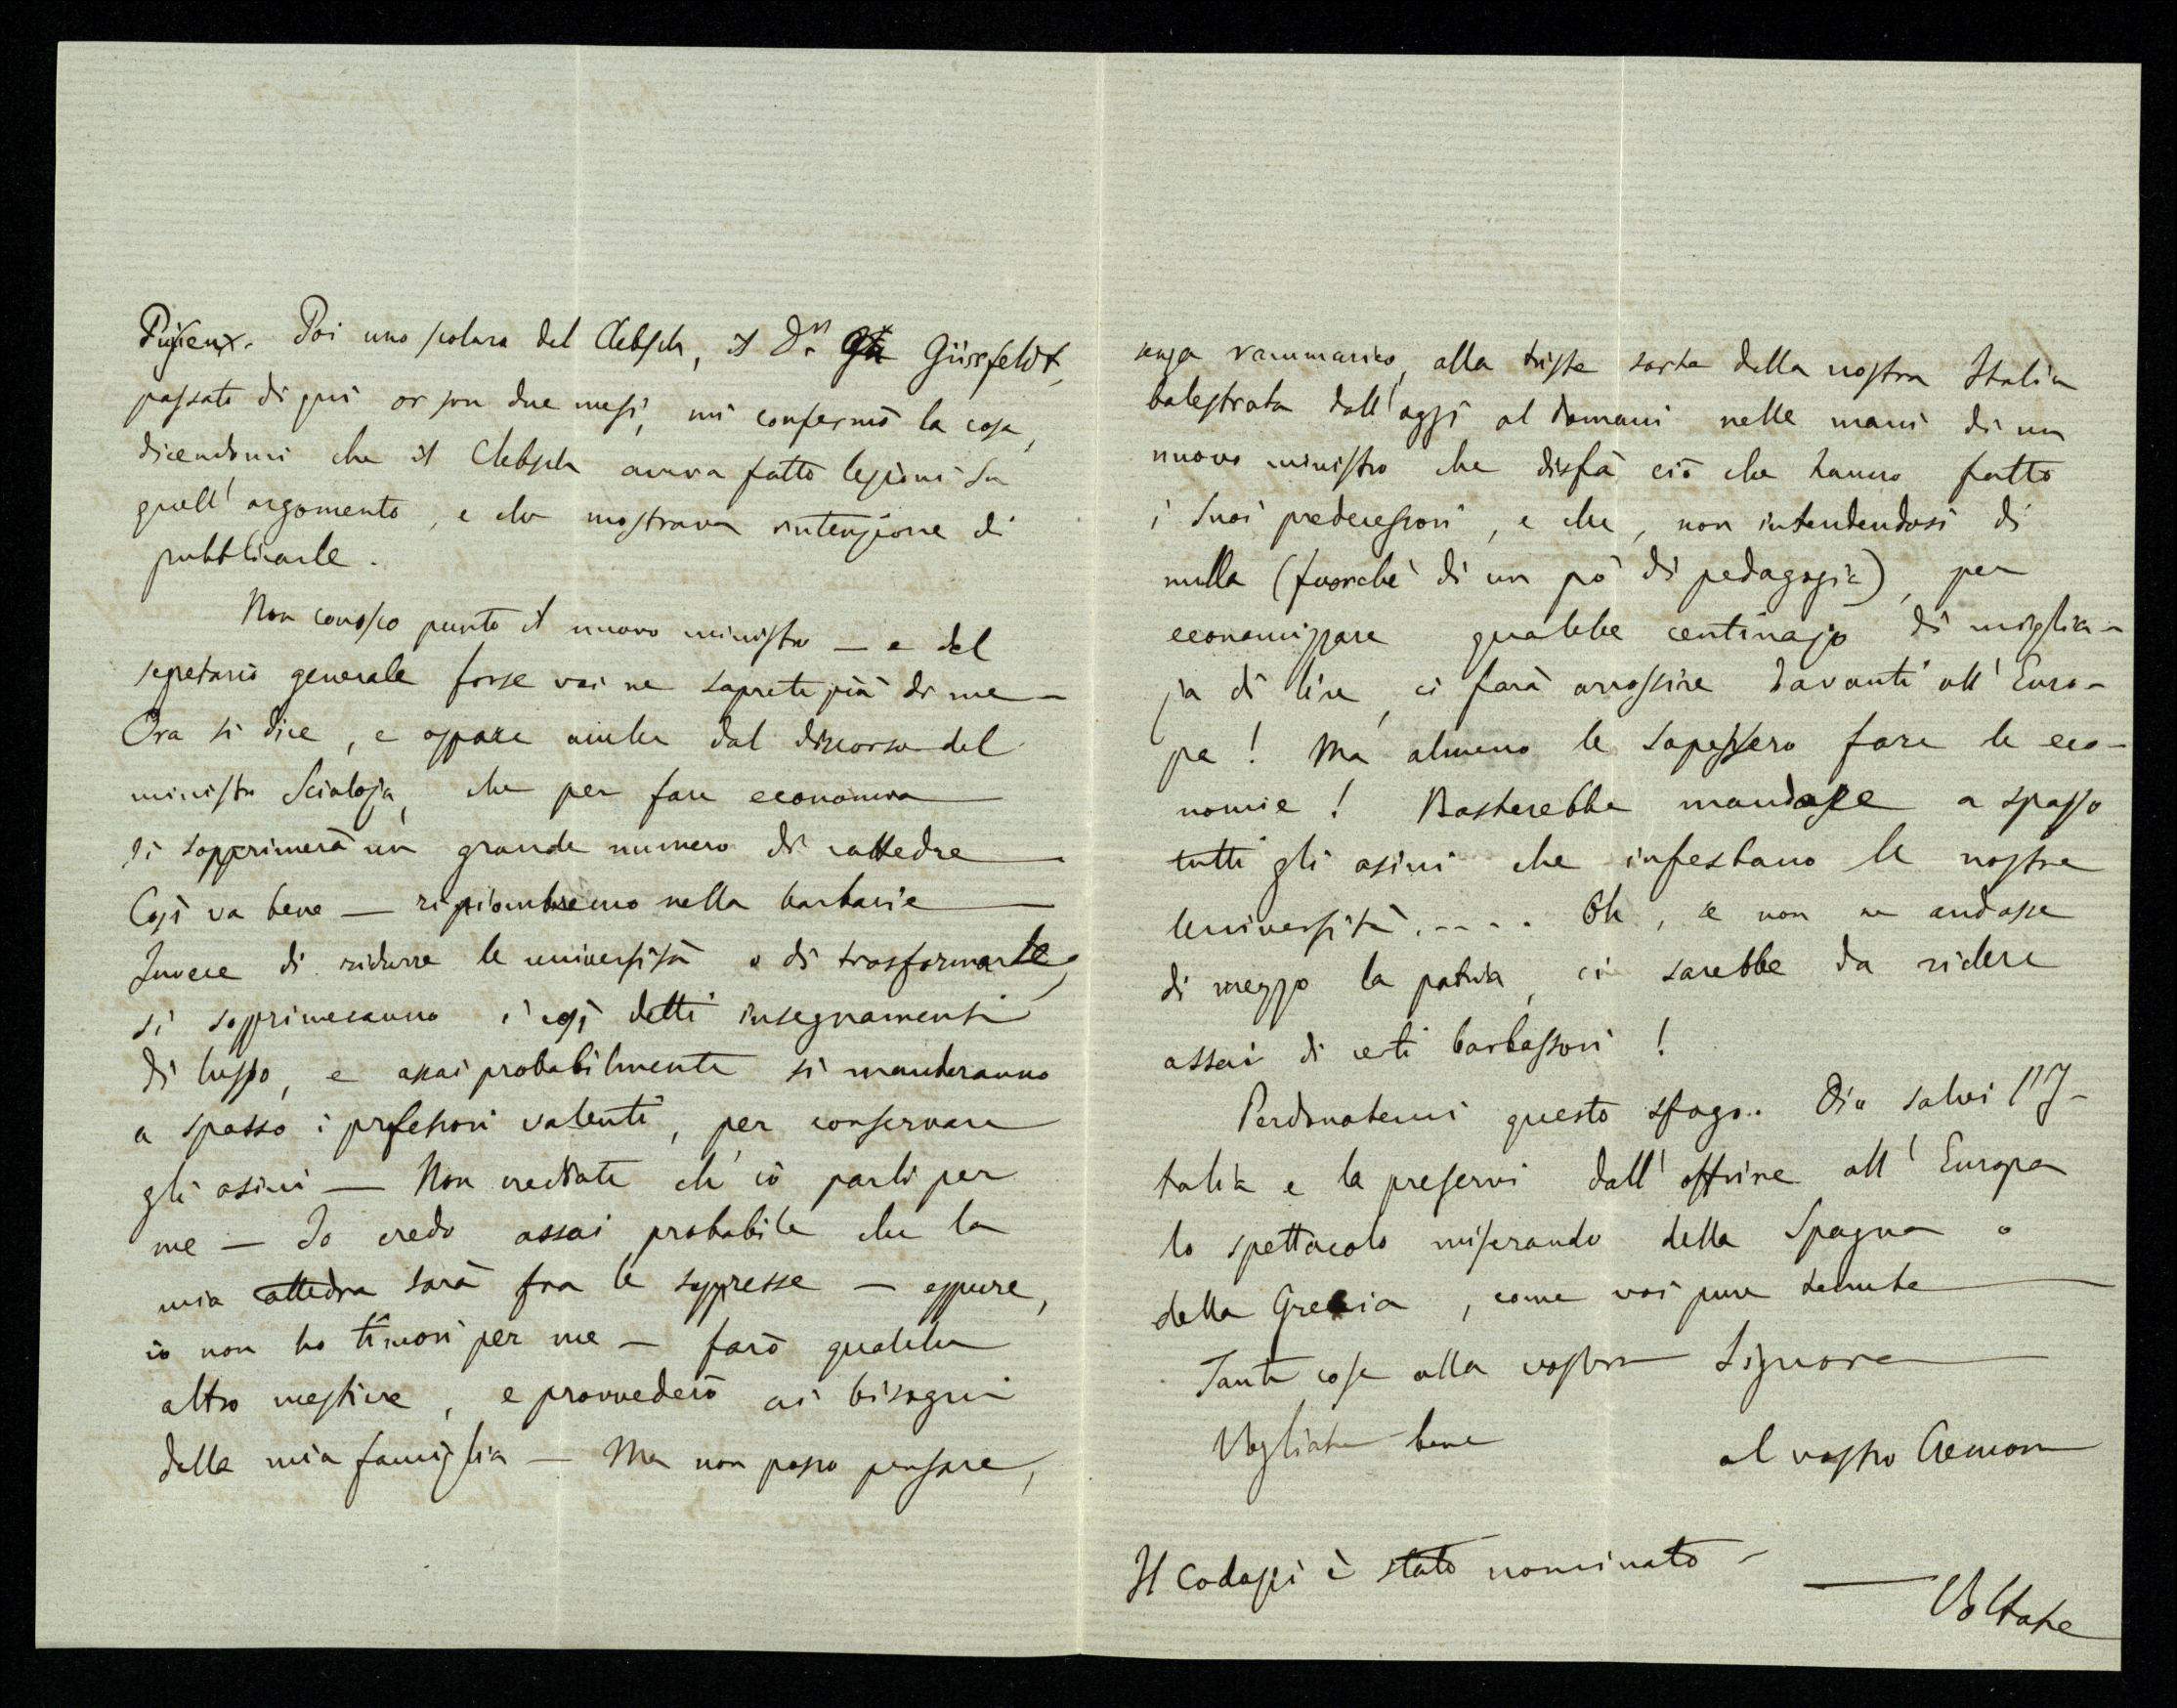 Puiseux. Poi uno scolare del Clebsch, il Dr. Güssfeldt,
passato di qui or son due mesi, mi confermò la cosa,
dicendomi che il Clebsch aveva fatto lezioni su
quell'argomento, e che mostrava intenzione di
pubblicarle.
Non conosco punto il nuovo ministro — e del
segretario generale forse voi ne saprete più di me —
Ora si dice, e appare anche dal discorso del
ministro Scialoja, che per fare economia
si sopprimerà un grande numero di cattedre —
Così va bene — ripiomberemo nella barbarie —
Invece di ridurre le università o di trasformarle,
si sopprimeranno i così detti insegnamenti
di lusso, e assai probabilmente si manderanno
a spasso i professori valenti, per conservare
gli asini — Non crediate ch'io parli per
me — Io credo assai probabile che la
mia cattedra sarà fra le soppresse — eppure,
io non ho timori per me — farò qualche
altro mestiere, e provvederò ai bisogni
della mia famiglia — Ma non posso pensare,
senza rammarico, alla triste sorte della nostra Italia
balestrata dall'oggi al domani nelle mani di un
nuovo ministro che disfà ciò che hanno fatto
i suoi predecessori, e che, non intendendosi di
nulla (fuorchè di un pò di pedagogia), per
economizzare qualche centinajo di miglia-
ja di lire, ci farà arrossire davanti all'Euro-
pa! Ma almeno le sapessero fare le eco-
nomie! Basterebbe mandare a spasso
tutti gli asini che infestano le nostre
Università..... Oh, se non ne andasse
di mezzo la patria, ci sarebbe da ridere
assai di certi barbassori!
Perdonatemi questo sfogo. Dio salvi l'I-
talia e la preservi dall'offrire all'Europa
lo spettacolo miserando della Spagna o
della Grecia, come voi pure temete —
Tante cose alla vostra Signora —
Vogliate bene
al vostro Cremona
Il Codazzi è stato nominato —
— Voltate